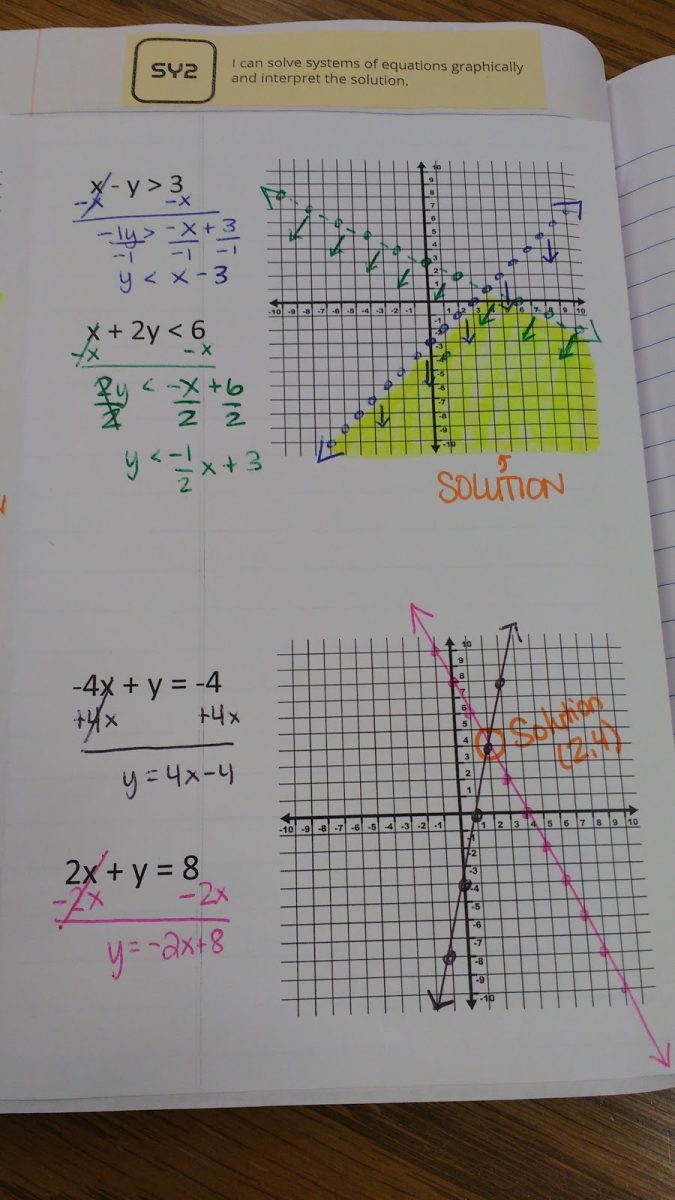 SY2
I can solve systems of equations graphically
and interpret the solution.
x - y > 3
-x -x
-1y > -x + 3
-1 -1 -1
y < x - 3
x + 2y < 6
-x -x
2y < -x + 6
2 2 2
y < -1/2 x + 3
10
9
8
7
6
5
4
3
2
1
-10 -9 -8 -7 -6 -5 -4 -3 -2 -1 1 2 3 4 5 6 7 8 9 10
-1
-2
-3
-4
-5
-6
-7
-8
-9
-10
SOLUTION
-4x + y = -4
+4x +4x
y = 4x - 4
2x + y = 8
-2x -2x
y = -2x + 8
10
9
8
7
6
5
4
3
2
1
-10 -9 -8 -7 -6 -5 -4 -3 -2 -1 1 2 3 4 5 6 7 8 9 10
-1
-2
-3
-4
-5
-6
-7
-8
-9
-10
Solution
(2,4)